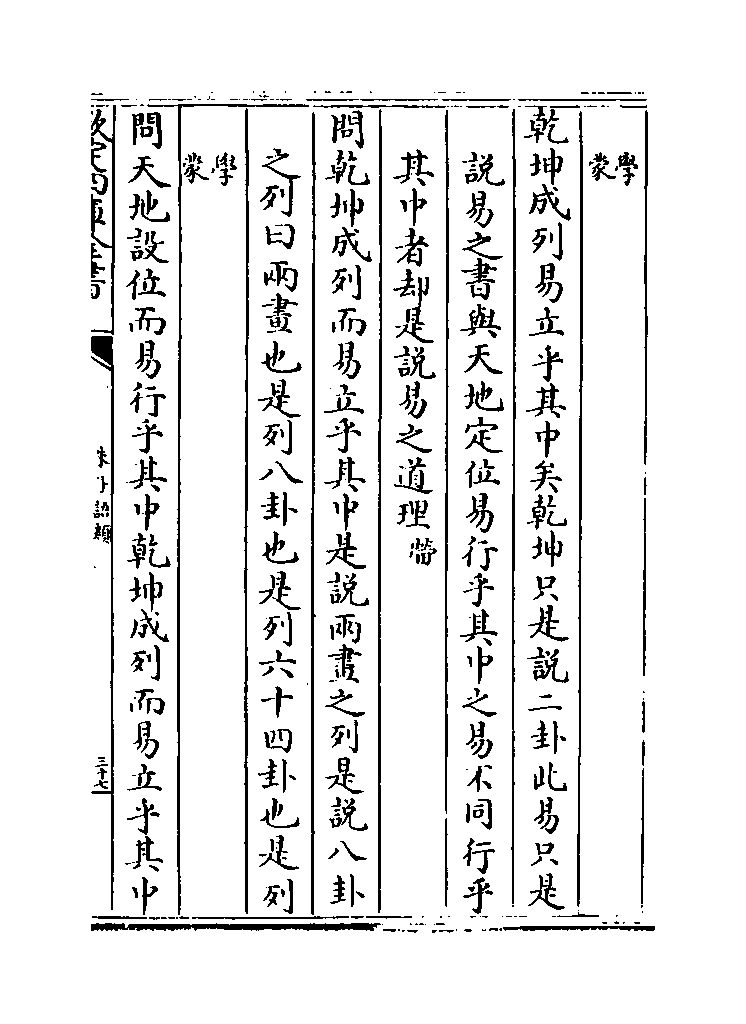 學蒙
乾坤成列易立乎其中矣乾坤只是説二卦此易只是
説易之書與天地定位易行乎其中之易不同行乎
其中者却是説易之道理㽦
問乾坤成列而易立乎其中是説兩畫之列是説八卦
之列曰兩畫也是列八卦也是列六十四卦也是列
學蒙
問天地設位而易行乎其中乾坤成列而易立乎其中
欽定四庫全書
朱子語類
三十七